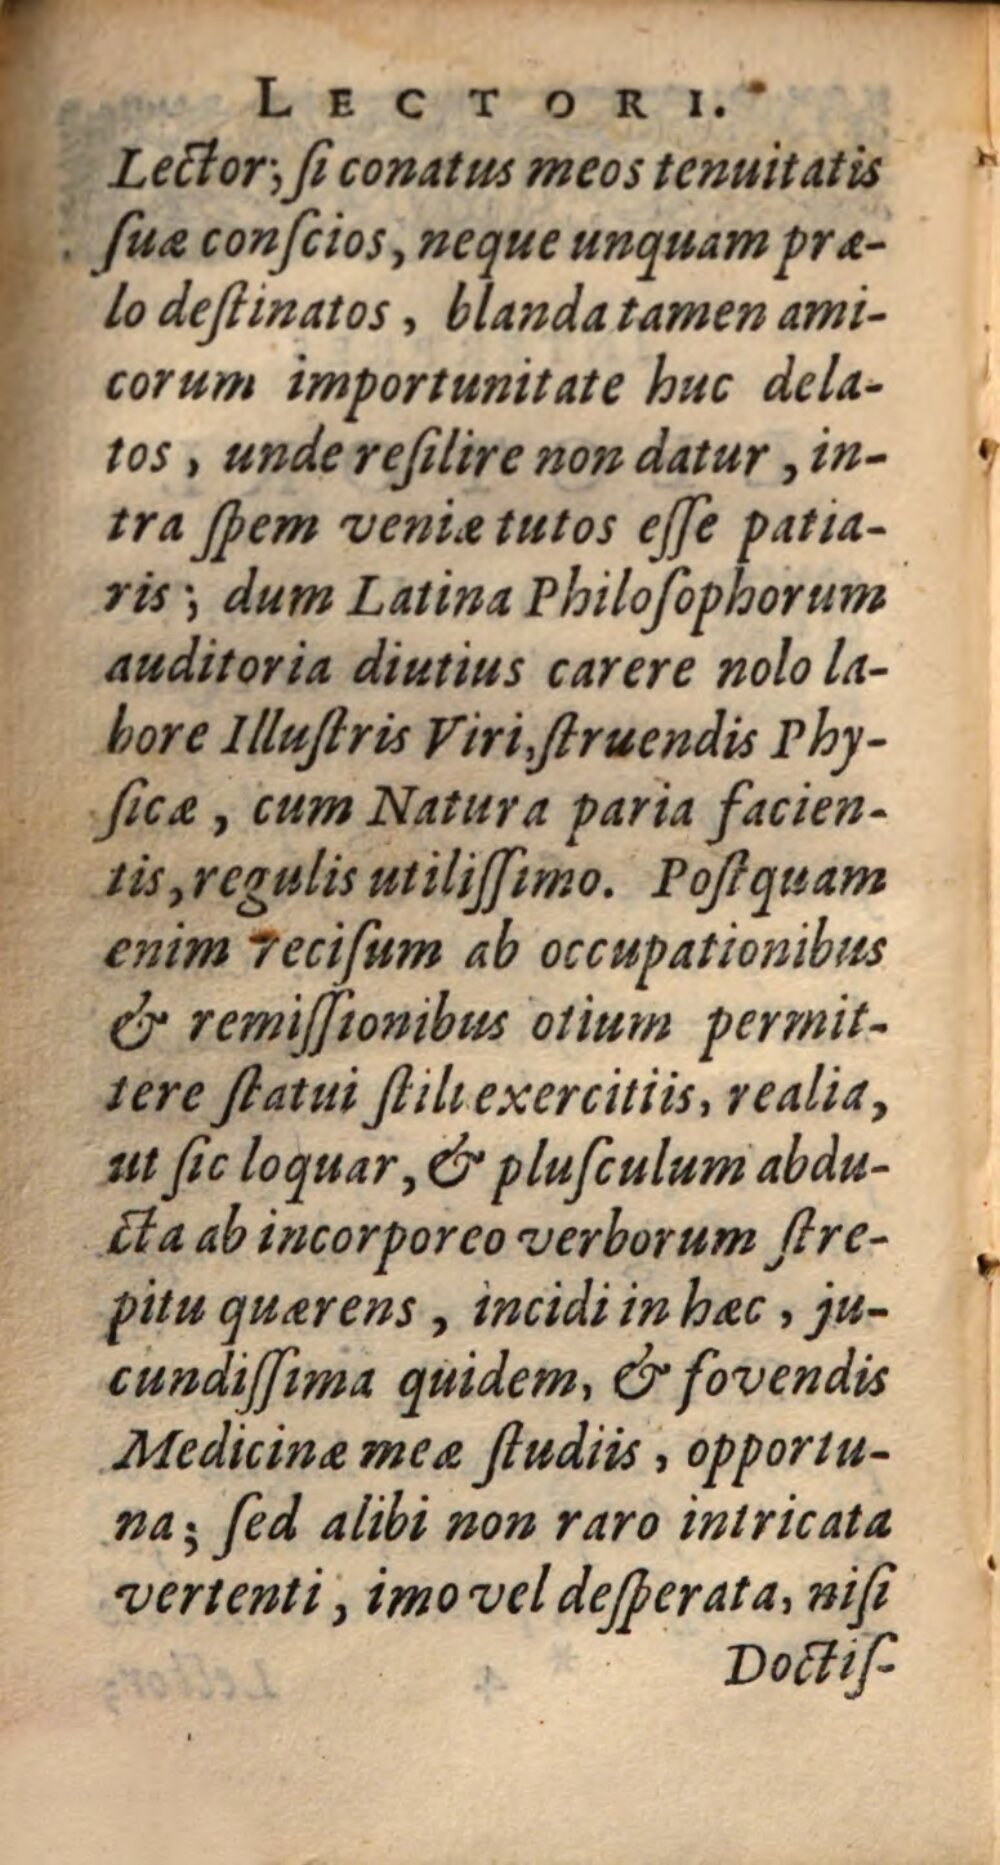 LECTORI.
Lector; ſi conatus meos tenuitatis
ſuæ conſcios, neque unquam præ-
lo deſtinatos, blanda tamen ami-
corum importunitate huc dela-
tos, unde reſilire non datur, in-
tra ſpem veniæ tutos eſſe patia-
ris; dum Latina Philoſophorum
auditoria diutius carere nolo la-
bore Illuſtris Viri, ſtruendis Phy-
ſicæ, cum Natura paria facien-
tis, regulis utiliſſimo. Poſtquam
enim reciſum ab occupationibus
& remiſſionibus otium permit-
tere ſtatui ſtili exercitiis, realia,
ut ſic loquar, & pluſculum abdu-
cta ab incorporeo verborum ſtre-
pitu quærens, incidi in hæc, ju-
cundiſſima quidem, & fovendis
Medicinæ meæ ſtudiis, opportu-
na; ſed alibi non raro intricata
vertenti, imo vel deſperata, niſi
Doctiſ-